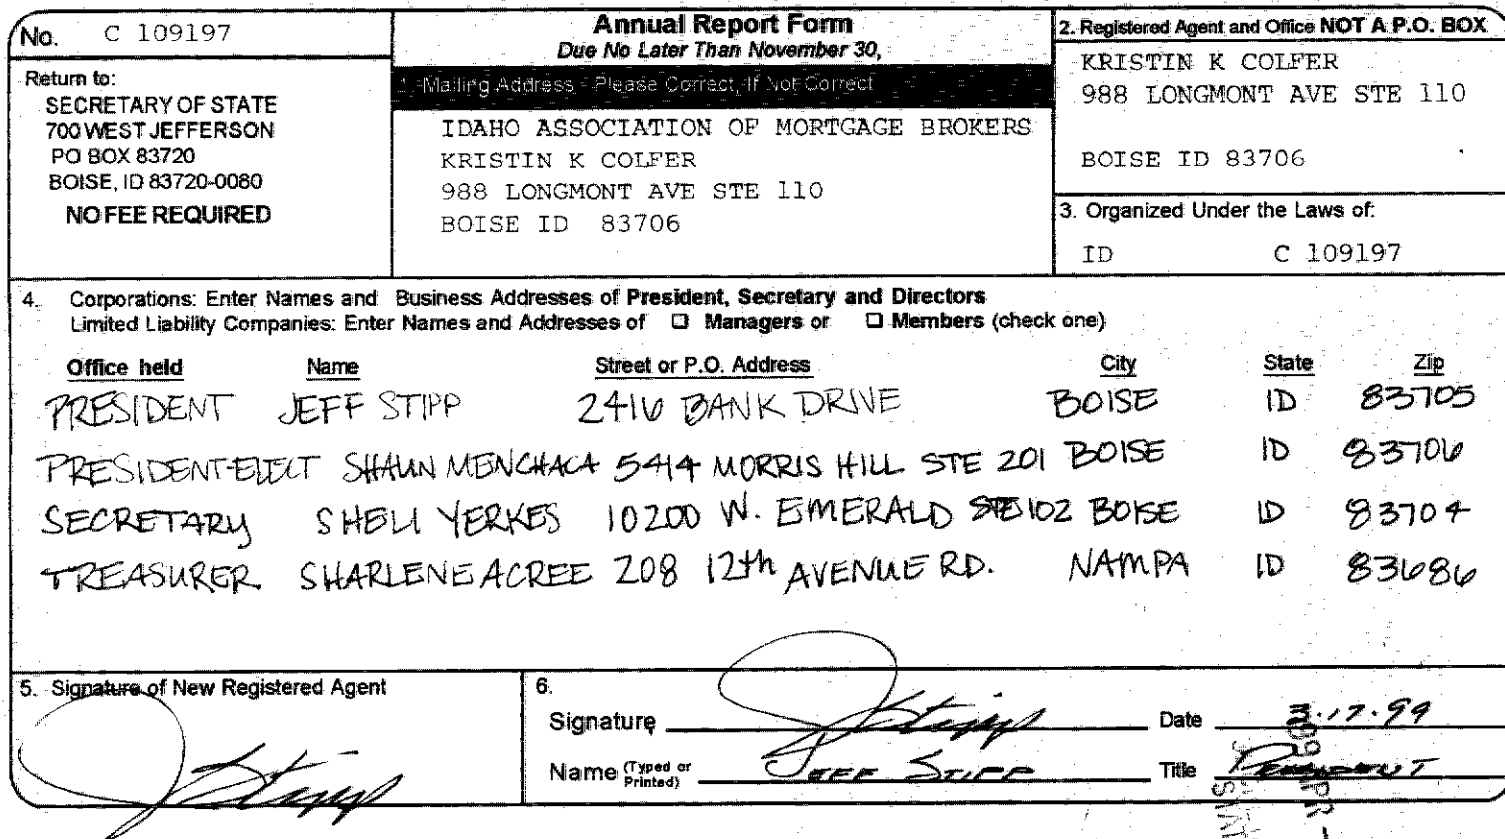 No. C 109197
Return to:
SECRETARY OF STATE
700 WEST JEFFERSON
PO BOX 83720
BOISE, ID 83720-0080
NO FEE REQUIRED
Annual Report Form
Due No Later Than November 30,
Mailing Address - Please Correct, If Not Correct
IDAHO ASSOCIATION OF MORTGAGE BROKERS
KRISTIN K COLFER
988 LONGMONT AVE STE 110
BOISE ID 83706
2. Registered Agent and Office NOT A P.O. BOX
KRISTIN K COLFER
988 LONGMONT AVE STE 110
BOISE ID 83706
3. Organized Under the Laws of:
ID C 109197
4. Corporations: Enter Names and Business Addresses of President, Secretary and Directors
Limited Liability Companies: Enter Names and Addresses of ☐ Managers or ☐ Members (check one)
Office held Name Street or P.O. Address City State Zip
PRESIDENT JEFF STIPP 2416 BANK DRIVE BOISE ID 83705
PRESIDENT-ELECT SHAUN MENCHACA 5414 MORRIS HILL STE 201 BOISE ID 83706
SECRETARY SHELI YERKES 10200 W. EMERALD STE 102 BOISE ID 83704
TREASURER SHARLENE ACREE 208 12th AVENUE RD. NAMPA ID 83686
5. Signature of New Registered Agent
JStipp
6.
Signature JStipp Date 3.17.99
Name (Typed or Printed) JEFF STIPP Title PRESIDENT